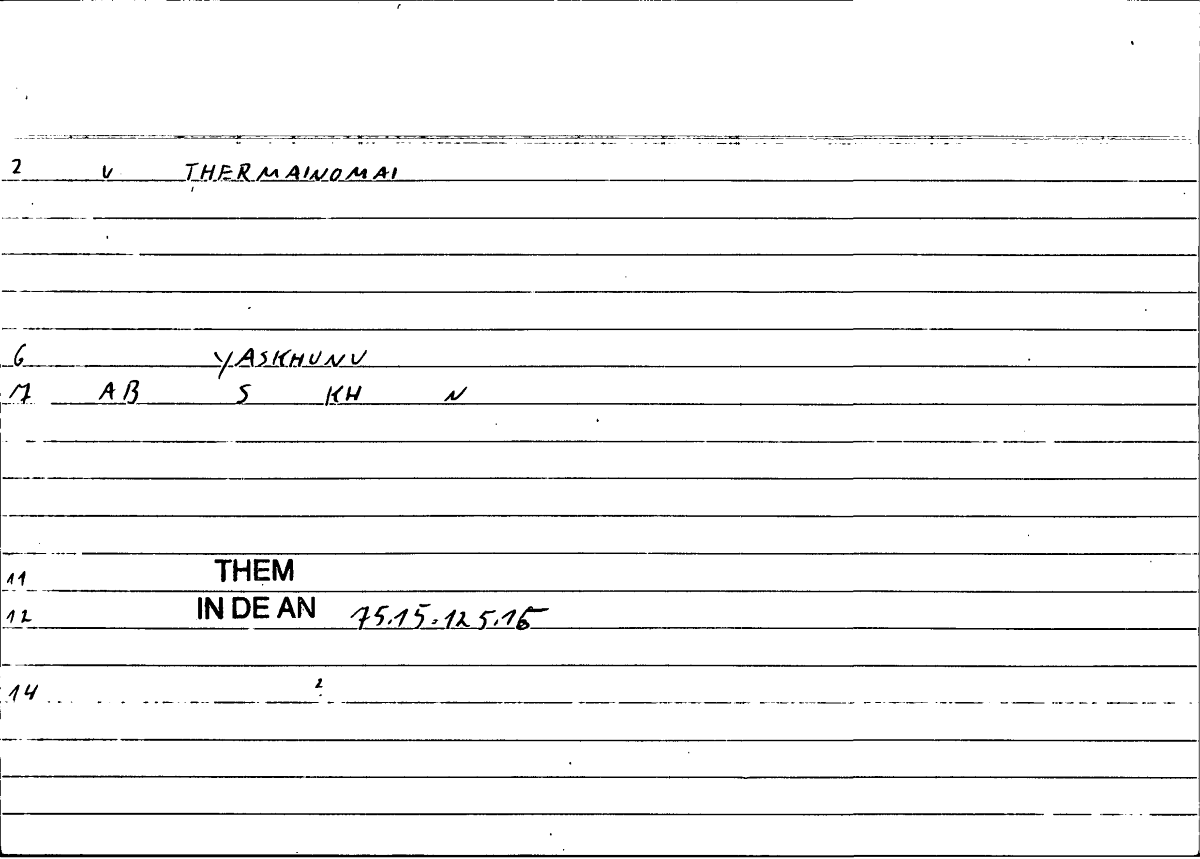 2 v THERMAINOMAI
6 YASKHUNU
7 AB S KH N
11 THEM
12 IN DE AN 75.15.125.16
14 2